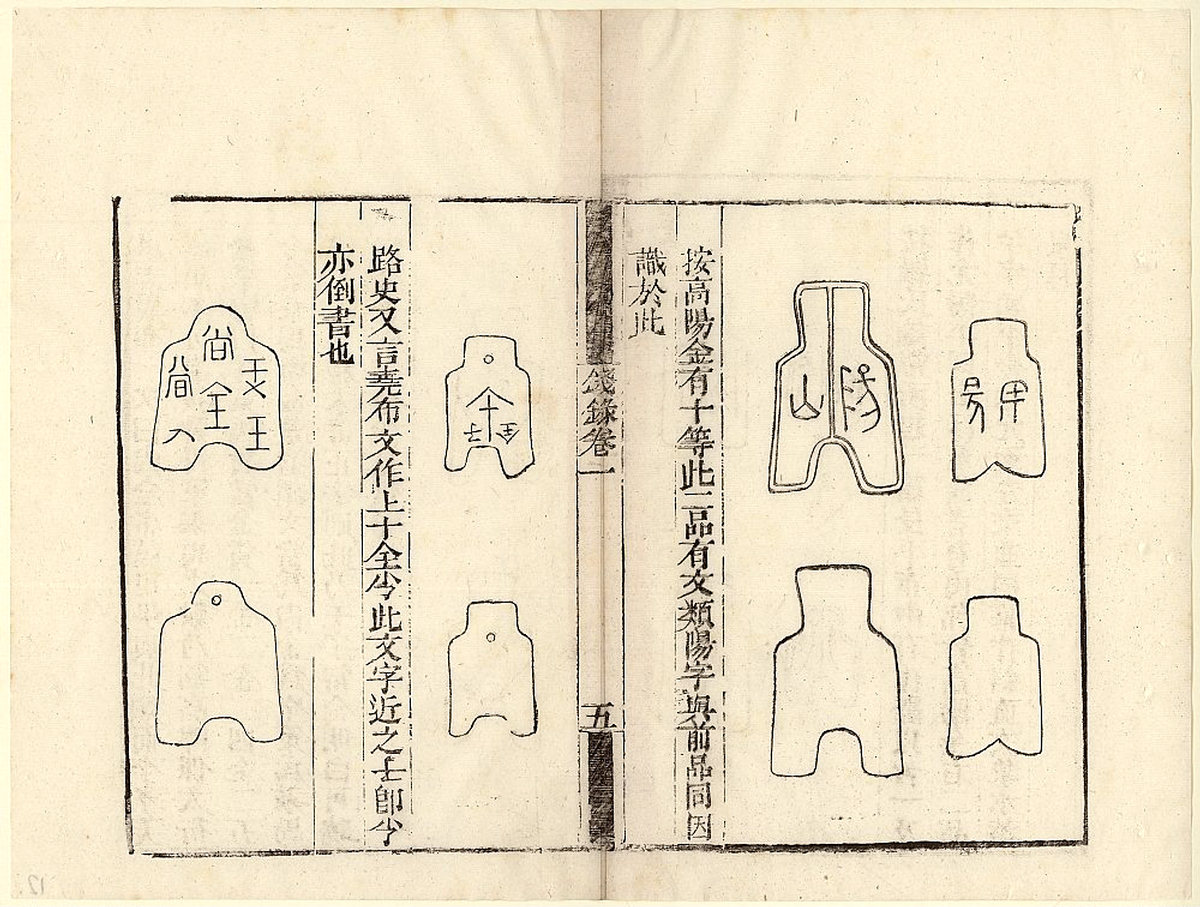 按高陽金有十等此二品有文類陽字與前品同因
識於此
錢錄卷一
五
路史又言堯布文作上十全兮此文字近之士即兮
亦倒書也